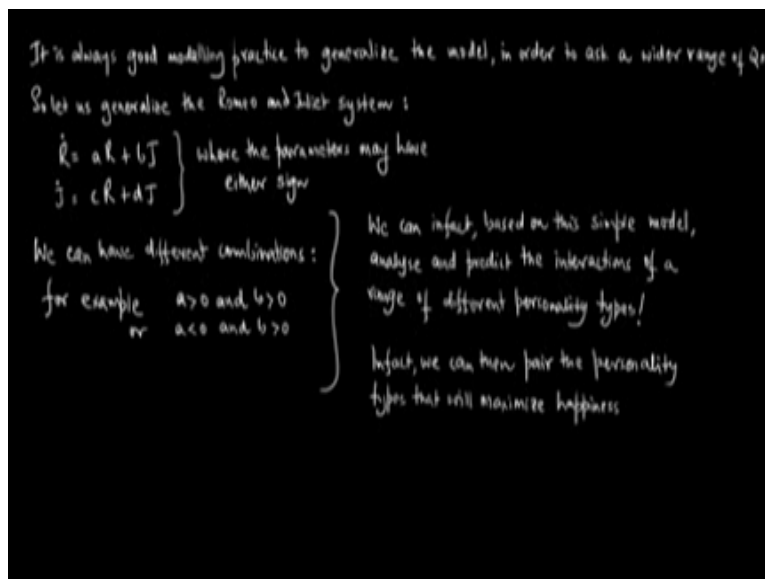 It is always good modelling practice to generalize the model, in order to ask a wider range of Qn
So let us generalize the Romeo and Juliet system :
Ṙ = aR + bJ
J̇ = cR + dJ
where the parameters may have
either sign
We can have different combinations :
for example a>0 and b>0
or a<0 and b>0
We can infact, based on this simple model,
analyse and predict the interactions of a
range of different personality types!
Infact, we can then pair the personality
types that will maximize happiness